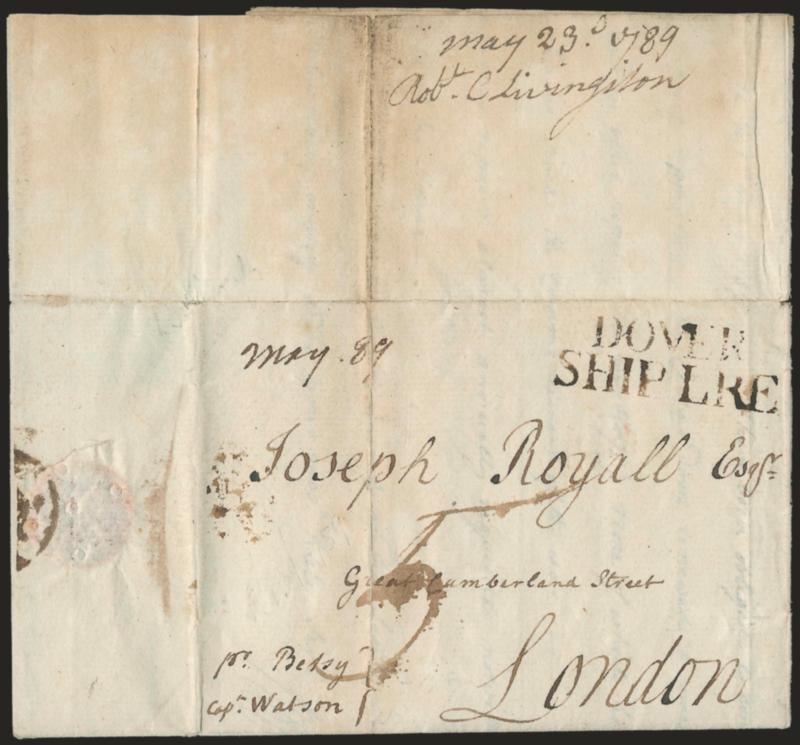 May 23.d 1789
Robt. C Livingston
May. 89
DOVER
SHIP LRE
Joseph Royall Esqr.
5
Great Cumberland Street
pr. Betsy
Capt. Watson
London